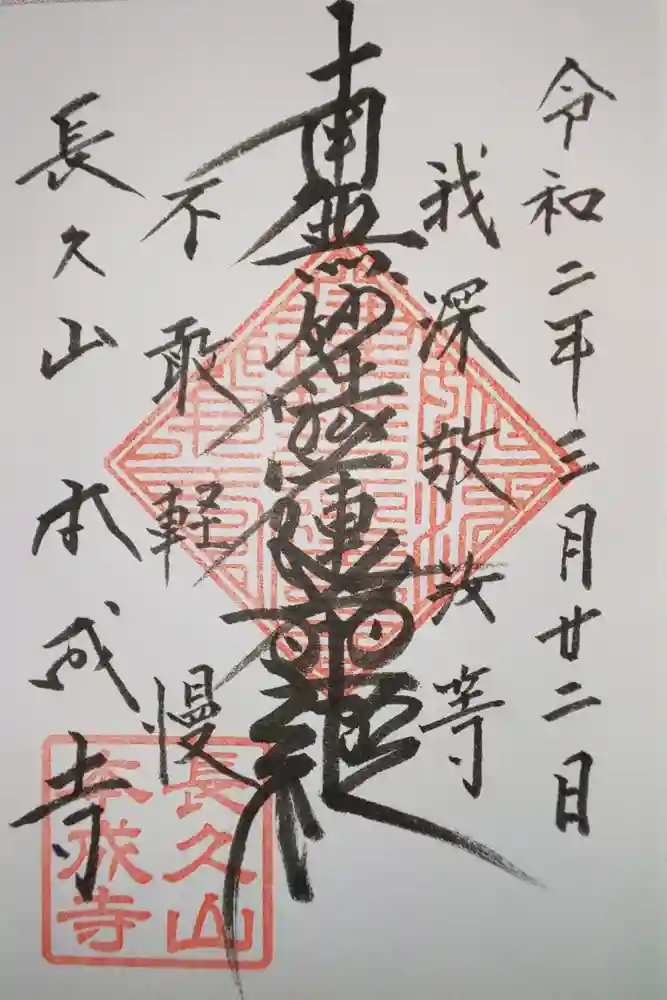 令和二年三月廿二日
我深敬汝等
南無妙法蓮華経
不敢軽慢
長久山 本成寺
長久山
本成寺